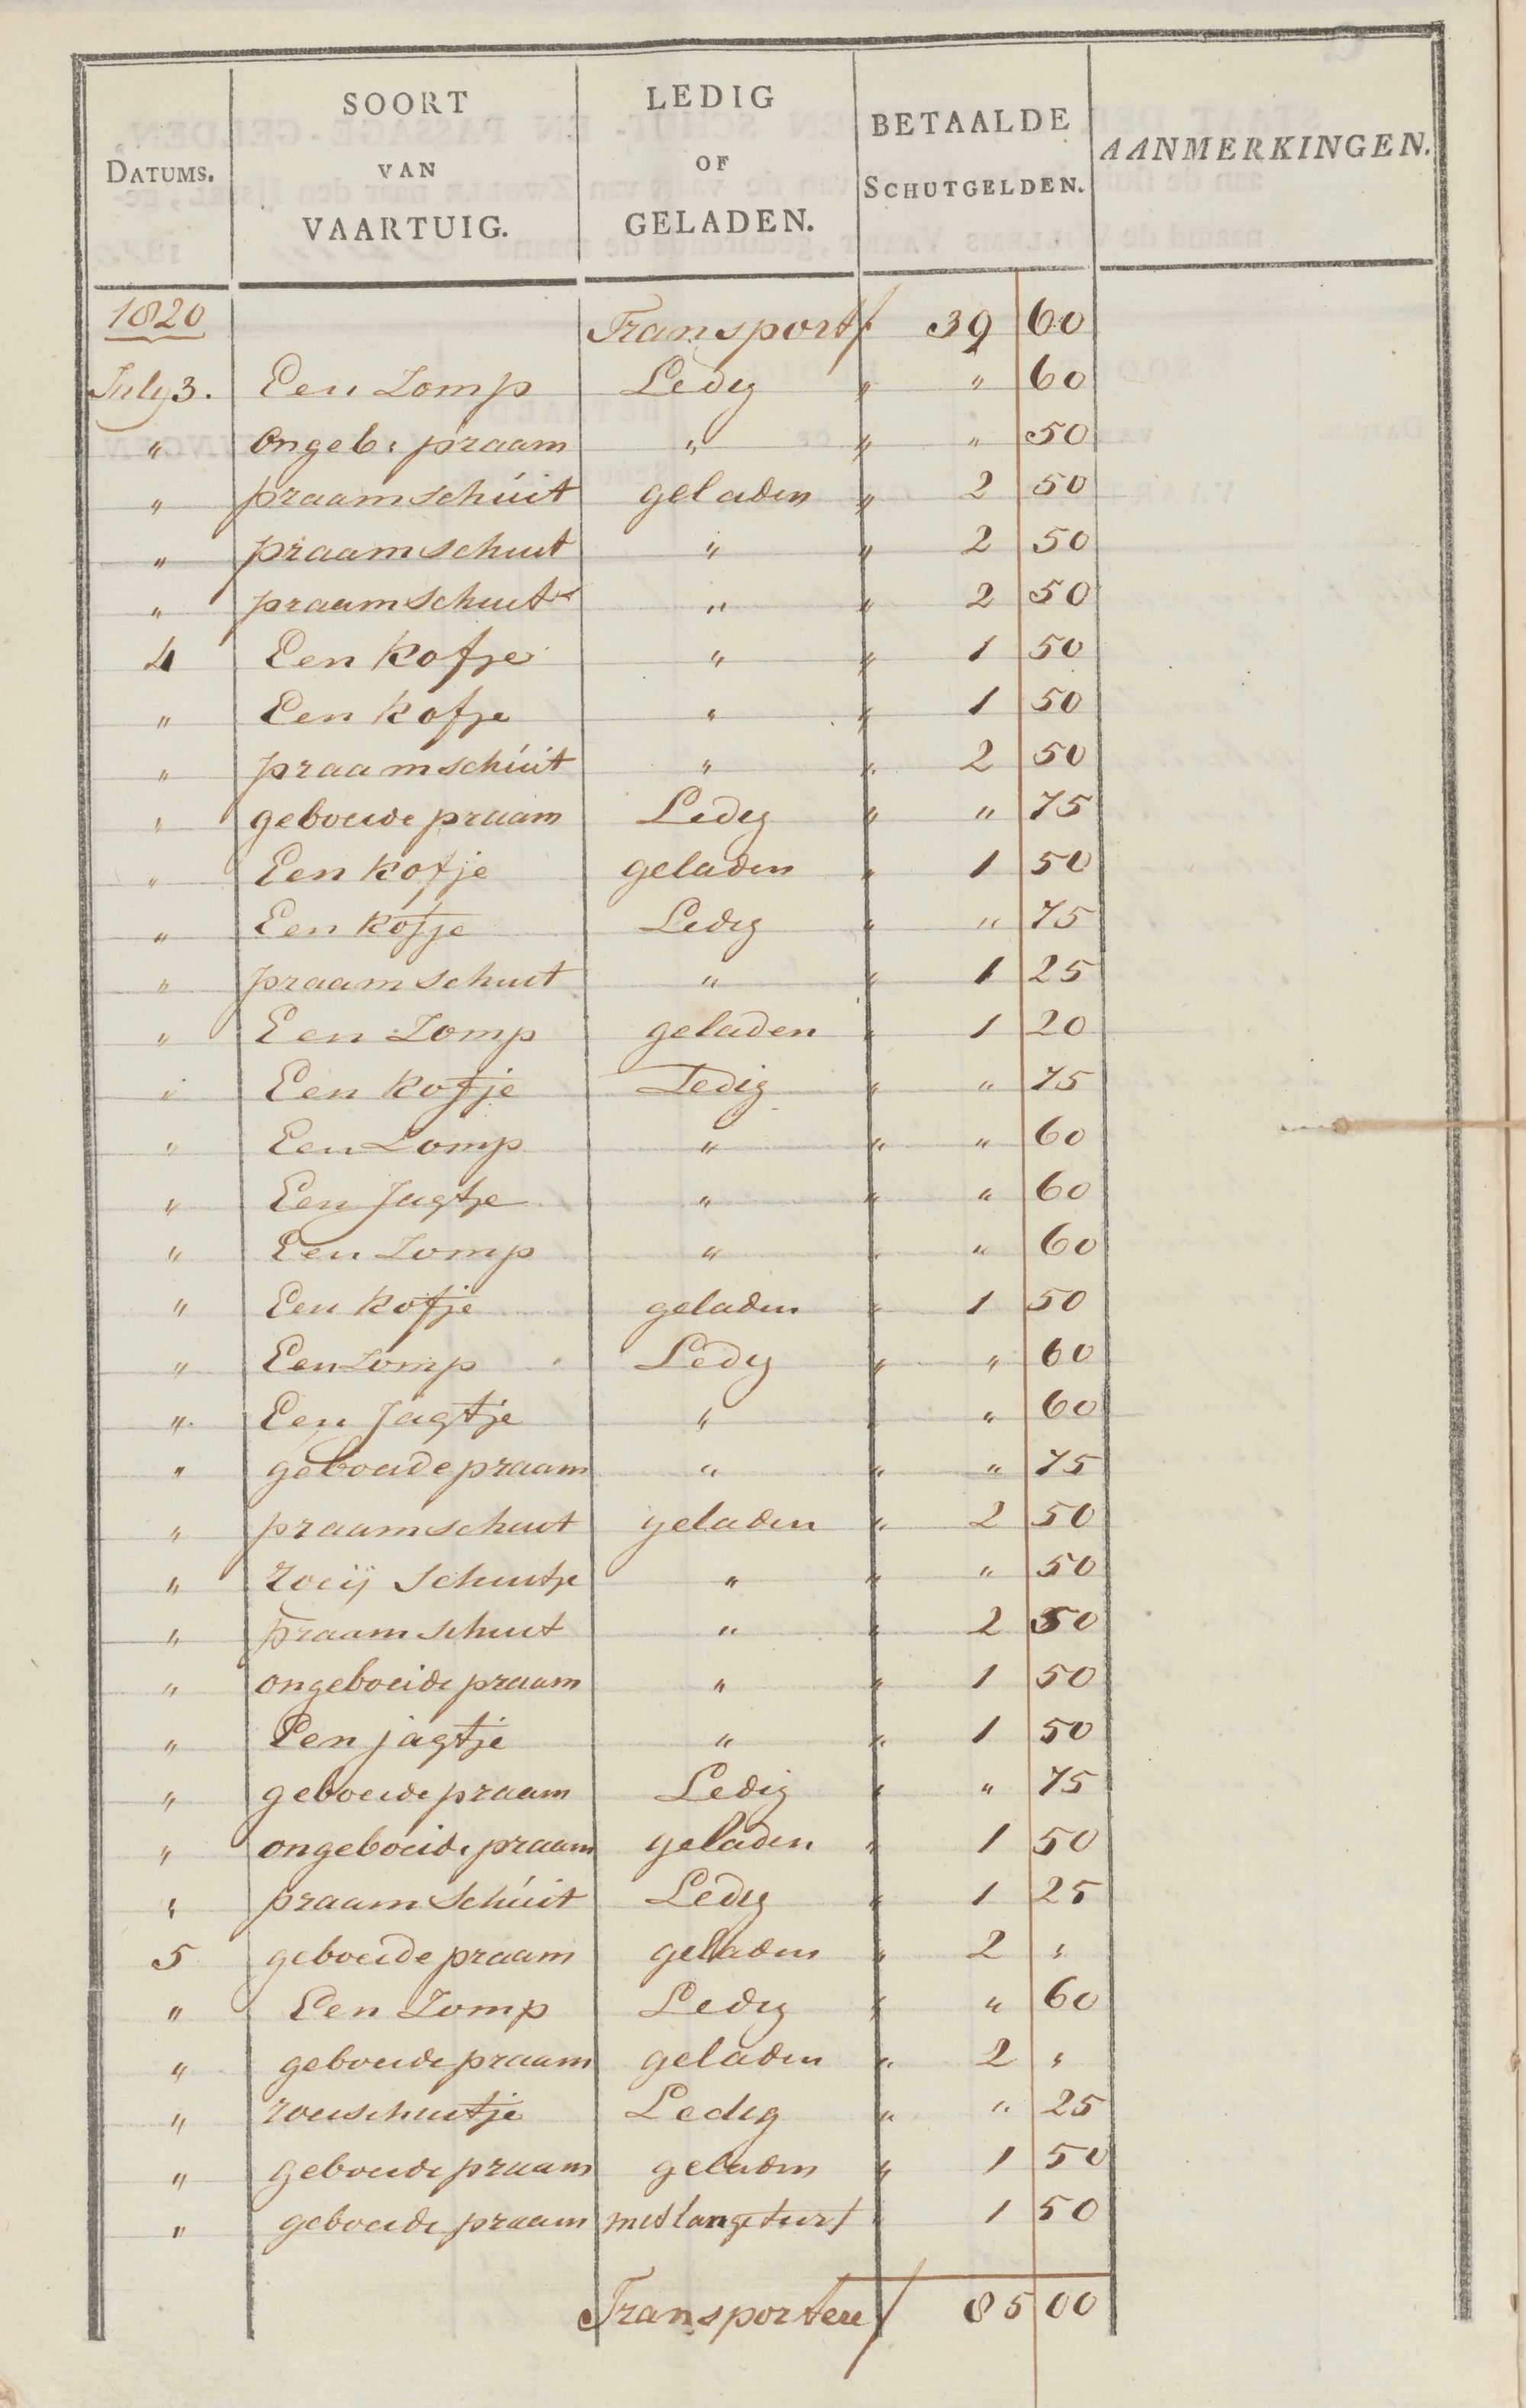 DATUMS. SOORT VAN VAARTUIG. LEDIG OF GELADEN. BETAALDE SCHUTGELDEN. AANMERKINGEN.
1820 Transport f 39 60
July 3. Een Zomp Ledig " " 60
" ongeb: praam " " " 50
" praamschuit geladen " 2 50
" praamschuit " " 2 50
" praamschuit " " 2 50
4 Een Kofje " " 1 50
" Een Kofje " " 1 50
" praamschuit " " 2 50
" geboeide praam Ledig " " 75
" Een Kofje geladen " 1 50
" Een Kofje Ledig " " 75
" praamschuit " " 1 25
" Een Zomp geladen " 1 20
" Een Kofje Ledig " " 75
" Een Zomp " " " 60
" Een Jagtje " " " 60
" Een Zomp " " " 60
" Een Kofje geladen " 1 50
" Een Zomp Ledig " " 60
" Een Jagtje " " " 60
" geboeide praam " " " 75
" praamschuit geladen " 2 50
" roeij schuitje " " " 50
" praamschuit " " 2 50
" ongeboeide praam " " 1 50
" Een jagtje " " 1 50
" geboeide praam Ledig " " 75
" ongeboeide praam geladen " 1 50
" praamschuit Ledig " 1 25
5 geboeide praam geladen " 2 "
" Een Zomp Ledig " " 60
" geboeide praam geladen " 2 "
" roeischuitje Ledig " " 25
" geboeide praam geladen " 1 50
" geboeide praam met lange turf " 1 50
Transportere f 85 00